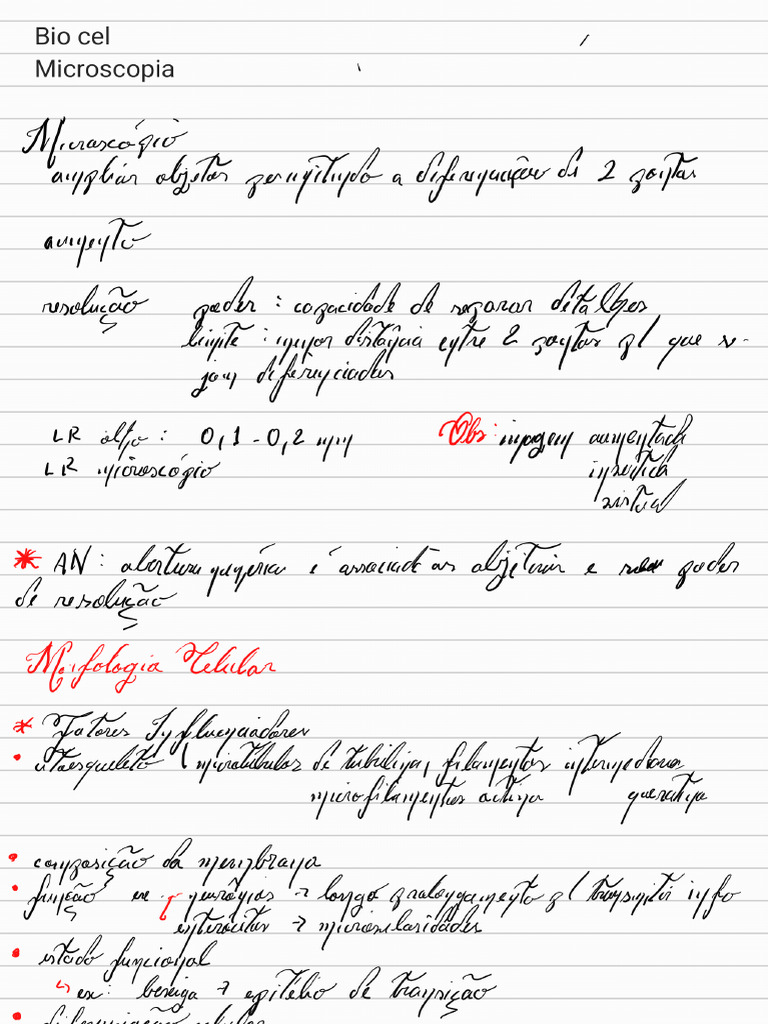 Bio cel
Microscopia
Microscópio
ampliar objetos permitindo a diferenciação de 2 pontos
aumento
resolução poder : capacidade de separar detalhes
limite : menor distância entre 2 pontos p/ que se-
jam diferenciados
LR olho : 0,1 - 0,2 mm Obs: imagem aumentada
LR microscópio invertida
virtual
* AN : abertura numérica é associada às objetivas e seu poder
de resolução
Morfologia Celular
* Fatores Influenciadores
• citoesqueleto (microtúbulos de tubulina, filamentos intermediários
microfilamentos actina queratina
• composição da membrana
• função ex neurônios → longo prolongamento p/ transmitir info
enterócitos → microvilosidades
• estado funcional
↳ ex: bexiga → epitélio de transição
• diferenciação celular